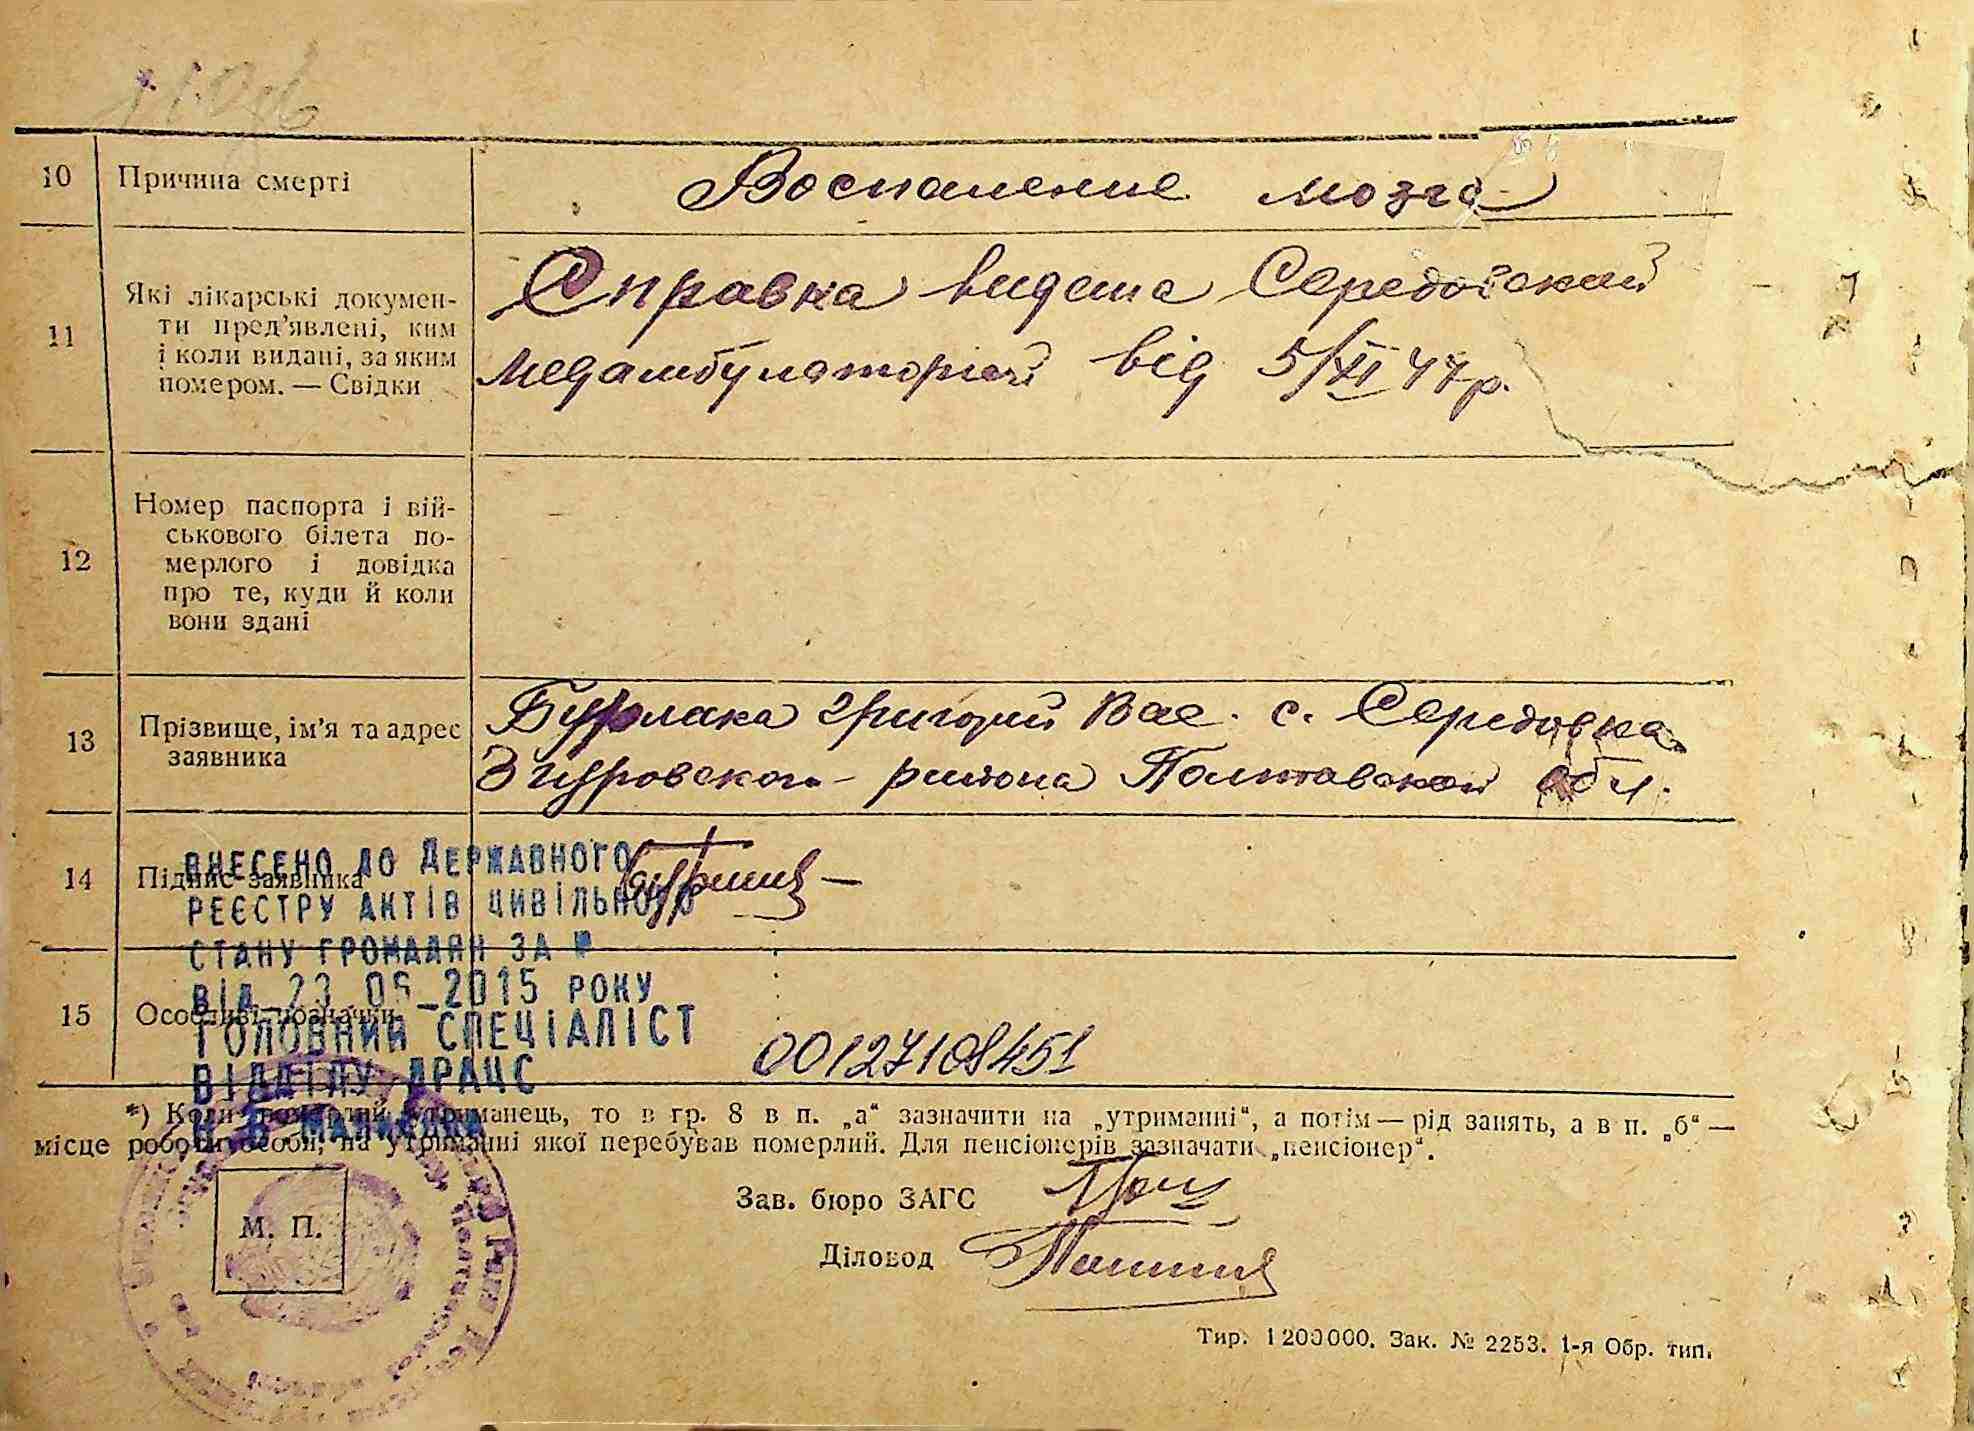 10 Причина смерті Воспаление мозга
11 Які лікарські докумен-
ти пред’явлені, ким
і коли видані, за яким
номером. — Свідки
Справка видана Середовской
медамбулаторией від 5/XI 47р.
12 Номер паспорта і вій-
ськового білета по-
мерлого і довідка
про те, куди й коли
вони здані
13 Прізвище, ім’я та адрес
заявника
Бурлака Григорий Вас. с. Середовка
Згуровского района Полтавской обл.
14 Підпис заявника
15 Особливі позначки
ВНЕСЕНО ДО ДЕРЖАВНОГО
РЕЄСТРУ АКТІВ ЦИВІЛЬНОГО
СТАНУ ГРОМАДЯН ЗА №
ВІД 23 06 2015 РОКУ
ГОЛОВНИЙ СПЕЦІАЛІСТ
ВІДДІЛУ ДРАЦС
00127108451
*) Коли померлий утриманець, то в гр. 8 в п. „а“ зазначити на „утриманні“, а потім — рід занять, а в п. „б“ —
місце роботи особи, на утриманні якої перебував померлий. Для пенсіонерів зазначати „пенсіонер“.
Зав. бюро ЗАГС
М. П.
Діловод
Тир. 1200000. Зак. № 2253. 1-я Обр. тип.